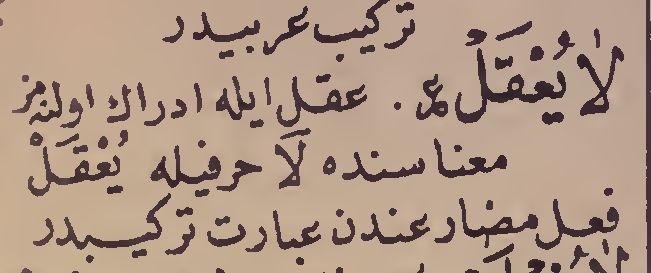 تركيب عربيدر
لَا يُعْقَلُ ع . عقل ايله ادراك اولنمز
معناسنده لَا حرفيله يُعْقَلْ
فعل مضارعندن عبارت تركيبدر